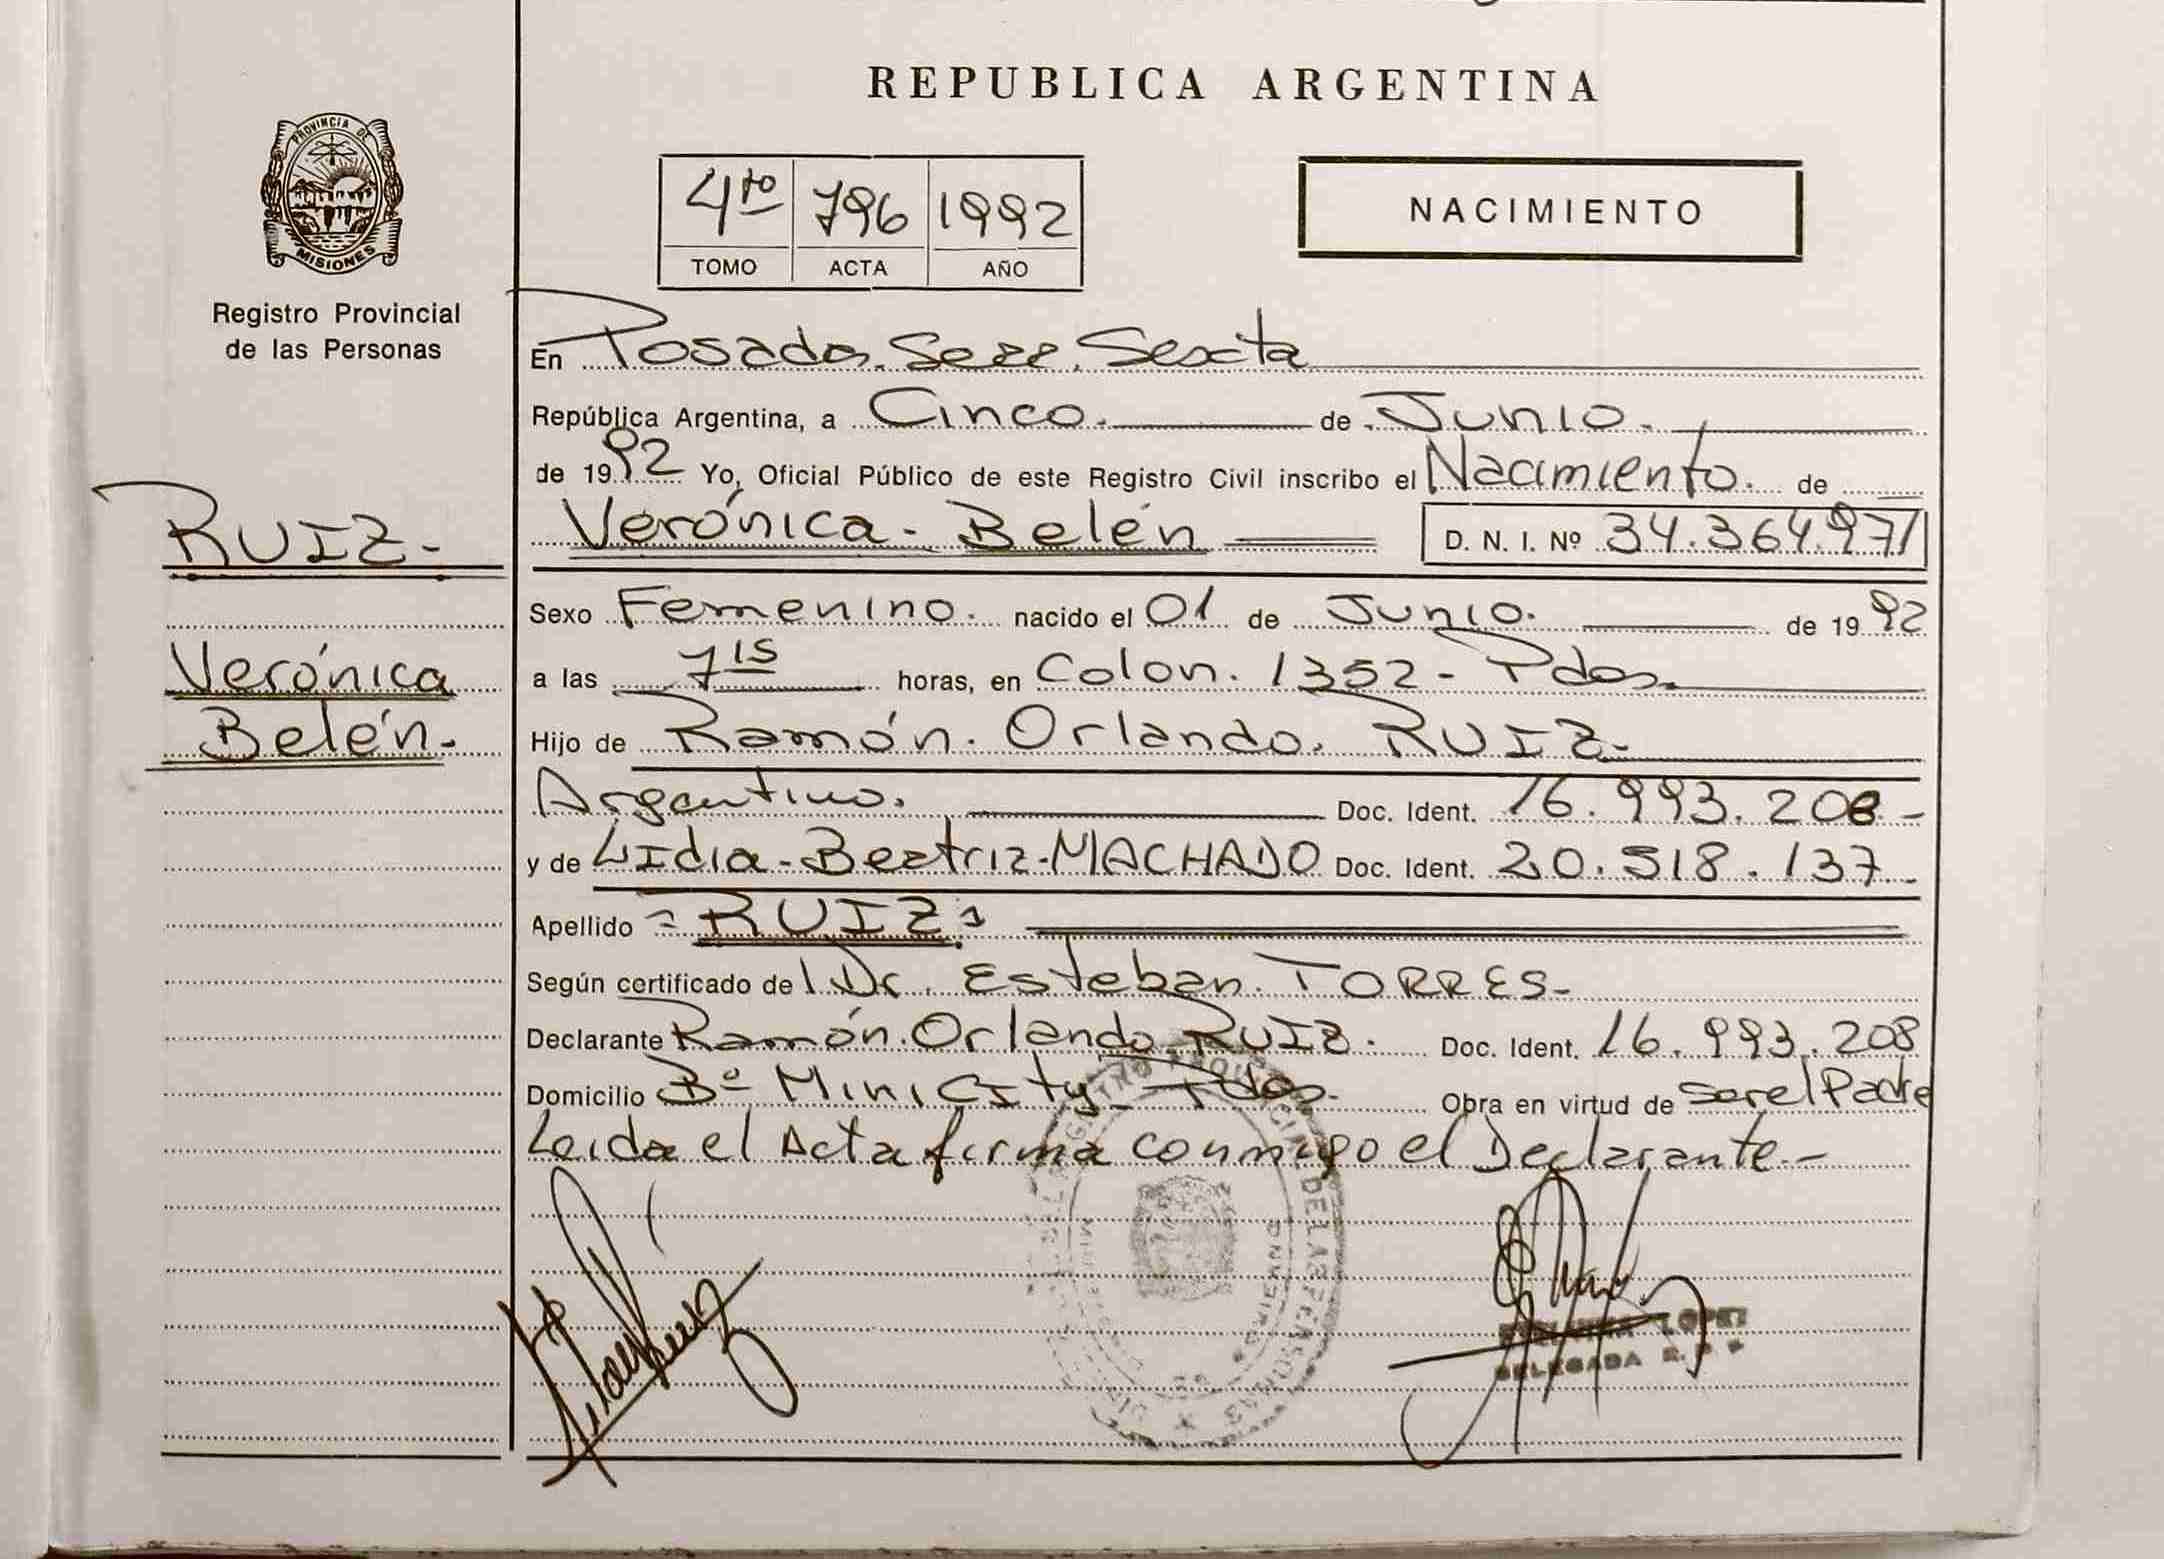 REPUBLICA ARGENTINA
PROVINCIA DE
MISIONES
Registro Provincial
de las Personas
4to 796 1992
TOMO ACTA AÑO
NACIMIENTO
En Posadas. Secc. Sexta
República Argentina, a Cinco. de Junio.
de 1992 Yo, Oficial Público de este Registro Civil inscribo el Nacimiento. de
RUIZ-
Verónica
Belén.
Verónica- Belén D. N. I. Nº 34.364.971
Sexo Femenino. nacido el 01 de Junio. de 1992
a las 7 15 horas, en Colon. 1352- Pdas.
Hijo de Ramón. Orlando. RUIZ-
Argentino. Doc. Ident. 16.993.208-
y de Lidia-Beatriz-MACHADO Doc. Ident. 20.518.137-
Apellido = RUIZ
Según certificado de Dr. Esteban TORRES-
Declarante Ramón. Orlando RUIZ. Doc. Ident. 16.993.208
Domicilio Bº Mini City- Pdas. Obra en virtud de ser el Padre
Leida el Acta firma conmigo el Declarante-
LOPEZ
DELEGADA R. P. P.